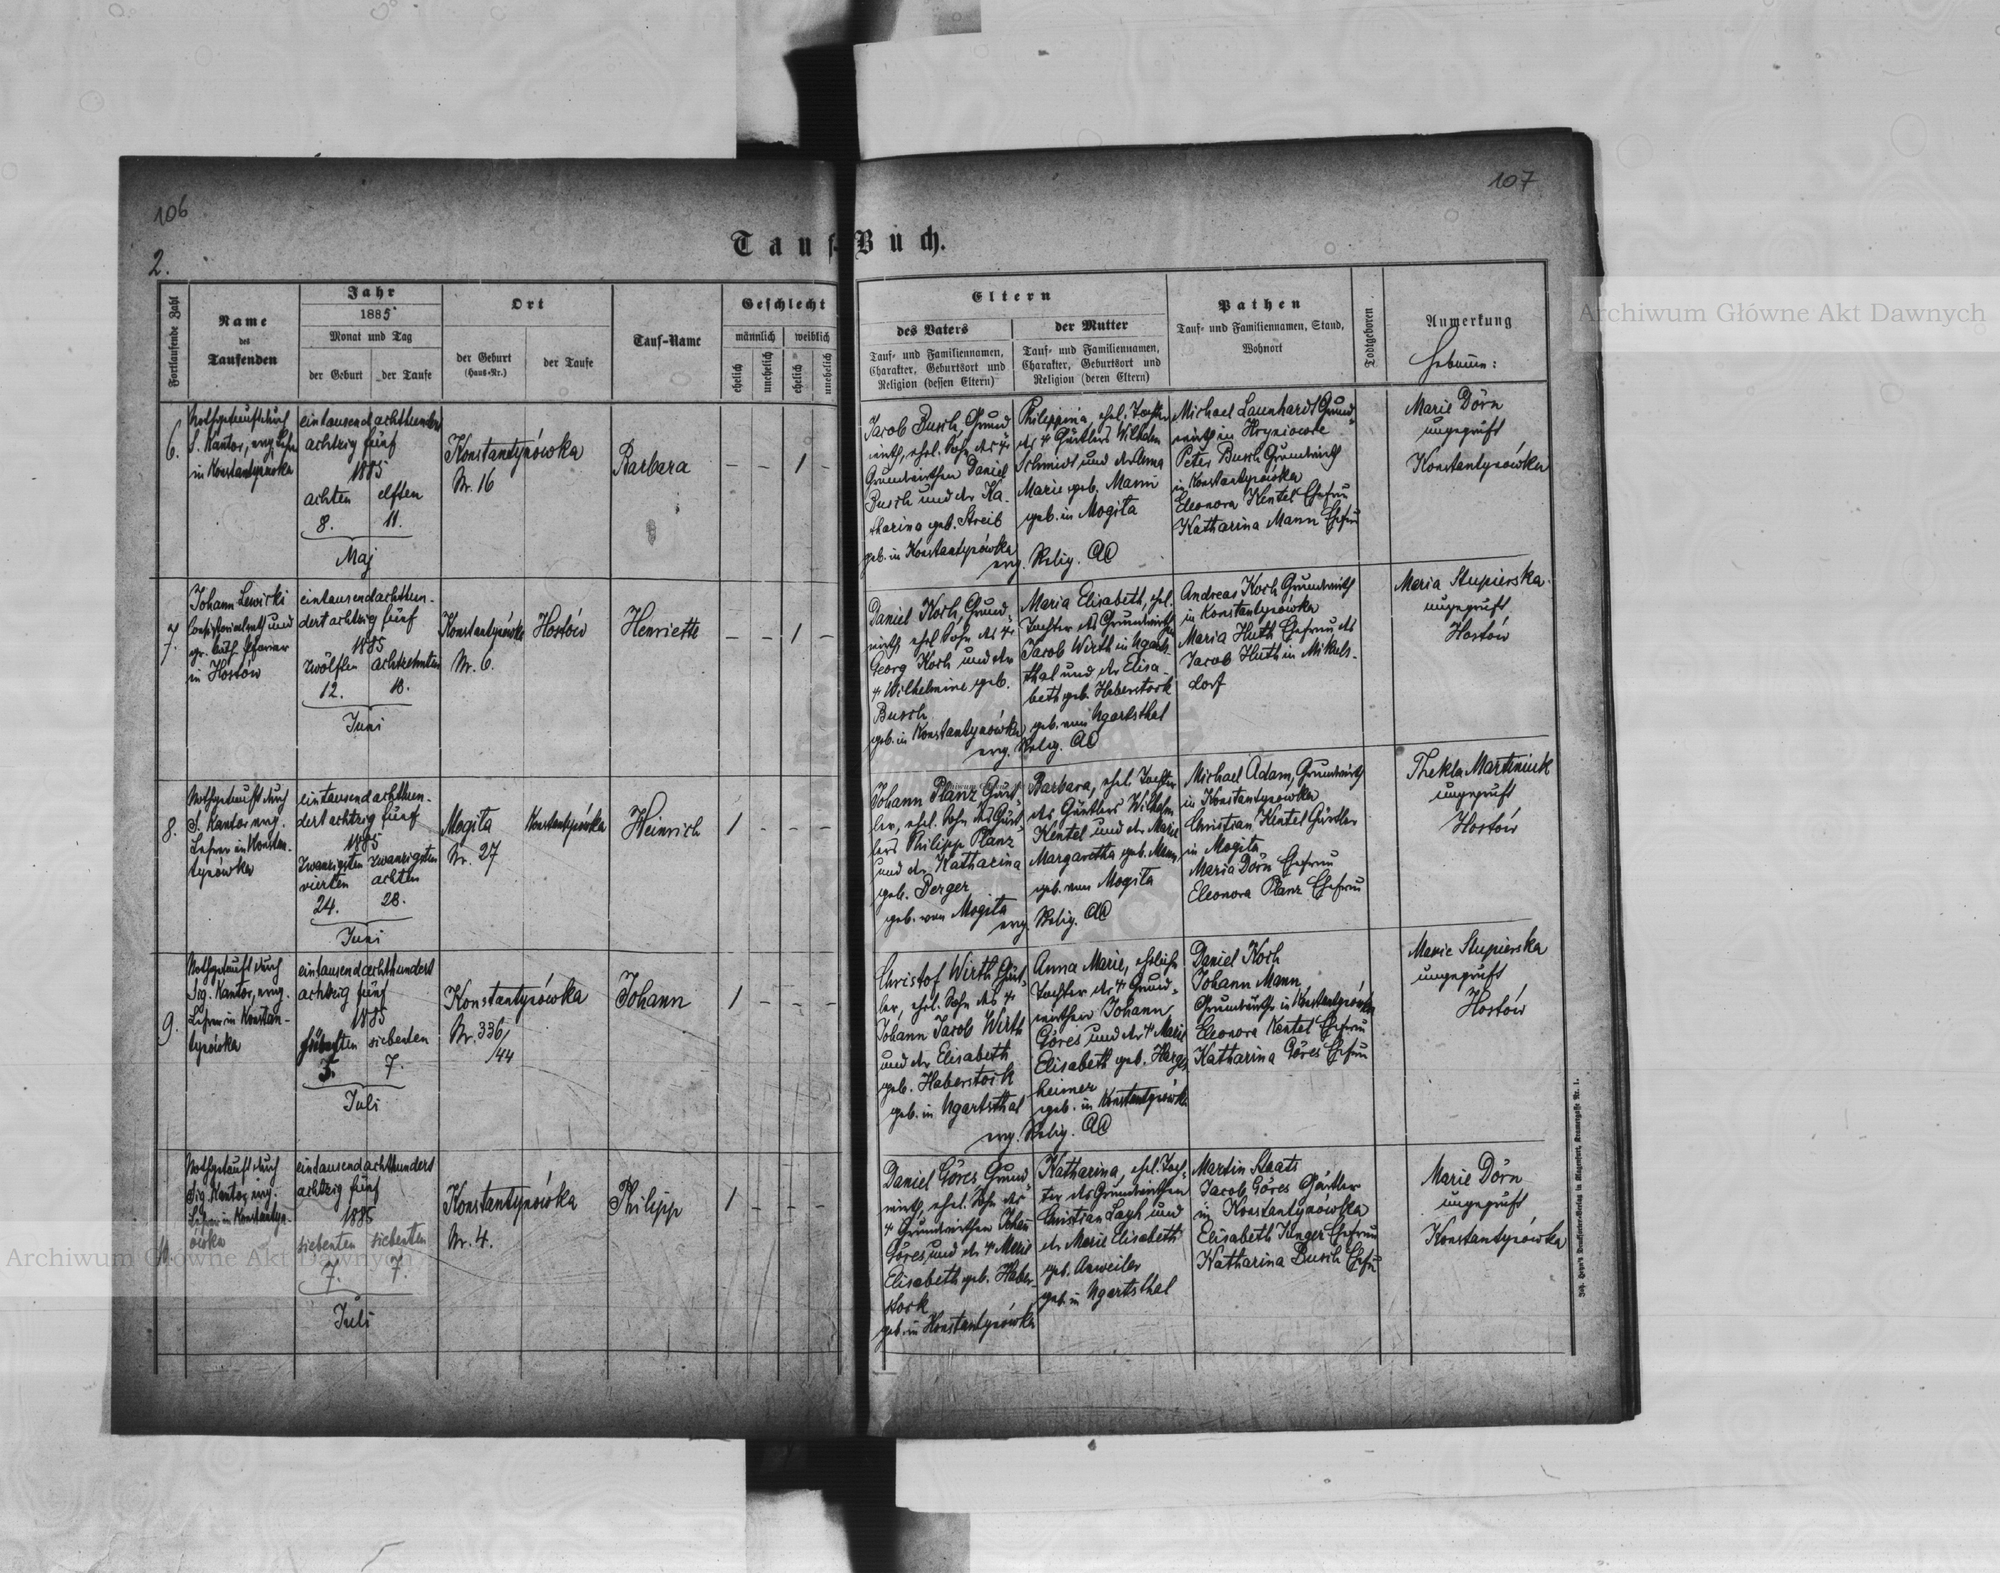 106
107
2.
Tauf-Buch.
Fortlaufende Zahl
Name
des
Taufenden
Jahr
1885
Monat und Tag
der Geburt
der Taufe
Ort
der Geburt
(Haus-Nr.)
der Taufe
Tauf-Name
Geschlecht
männlich
weiblich
ehelich
unehelich
ehelich
unehelich
Eltern
des Vaters
Tauf- und Familiennamen,
Charakter, Geburtsort und
Religion (dessen Eltern)
der Mutter
Tauf- und Familiennamen,
Charakter, Geburtsort und
Religion (deren Eltern)
Pathen
Tauf- und Familiennamen, Stand,
Wohnort
Todtgeboren
Anmerkung
Hebamme:
6.
Nothgetauft durch
S. Kantor, evg. Lehrer
in Konstantynówka
eintausend achthundert
achtzig fünf
1885
achten
elften
8.
11.
Maj
Konstantynówka
Nr. 16
Barbara
– – 1 –
Jacob Busch, Grund
wirth, ehel. Sohn des †
Grundwirthen Daniel
Busch und der Ka-
tharina geb. Streib
geb. in Konstantynówka
Philippina, ehel. Tochter
des † Gärtlers Wilhelm
Schmidt und der Anna
Marie geb. Mann
geb. in Mogila
evg. Relig. AC
Michael Launhardt Grund-
wirth in Hryniowce
Peter Busch Grundwirth
in Konstantynówka
Eleonora Kentel Ehefrau
Katharina Mann Ehefrau
Marie Dörn
ungeprüft
Konstantynówka
7.
Johann Lewicki
Consistorialrath und
gr. kath. Pfarrer
in Hostów
eintausend achthun-
dert achtzig fünf
1885
zwölften
achtzehnten
12.
18.
Juni
Konstantynówka
Nr. 6.
Hostów
Henriette
– – 1 –
Daniel Koch, Grund
wirth, ehel. Sohn des †
Georg Koch und der
† Wilhelmine geb.
Busch
geb. in Konstantynówka
Maria Elisabeth, ehel.
Tochter des Grundwirths
Jacob Wirth in Ugarts-
thal und der Elisa-
beth geb. Haberstock
geb. von Ugartsthal
evg. Relig. AC
Andreas Koch Grundwirth
in Konstantynówka
Maria Huth Ehefrau des
Jacob Huth in Mikuls-
dorf
Maria Stupierska
ungeprüft
Hostów
8.
Nothgetauft durch
S. Kantor evg.
Lehrer in Konstan-
tynówka
eintausend achthun-
dert achtzig fünf
1885
zwanzigsten
vierten
zwanzigsten
achten
24.
28.
Juni
Mogila
Nr. 27
Konstantynówka
Heinrich
1 – – –
Johann Planz Gärt-
ler, ehel. Sohn des Gärt-
lers Philipp Planz
und der Katharina
geb. Berger
geb. von Mogila
Barbara, ehel. Tochter
des Gärtlers Wilhelm
Kentel und der Marie
Margaretha geb. Mann
geb. von Mogila
evg. Relig. AC
Michael Adam, Grundwirth
in Konstantynówka
Christian Kentel Gärtler
in Mogila
Maria Dörn Ehefrau
Eleonora Planz Ehefrau
Thekla Martiniuk
ungeprüft
Hostów
9.
Nothgetauft durch
Sig. Kantor, evg.
Lehrer in Konstan-
tynówka
eintausend achthundert
achtzig fünf
1885
fünften
siebenten
5.
7.
Juli
Konstantynówka
Nr. 336/
/44
Johann
1 – – –
Christof Wirth Gärt-
ler, ehel. Sohn des †
Johann Jacob Wirth
und der Elisabeth
geb. Haberstock
geb. in Ugartsthal
Anna Marie, eheliche
Tochter des † Grund-
wirthen Johann
Göres und der † Marie
Elisabeth geb. Harges
heimer
geb. in Konstantynówka
evg. Relig. AC
Daniel Koch
Johann Mann
Grundwirthe in Konstantynówka
Eleonora Kentel Ehefrau
Katharina Göres Ehefrau
Marie Stupierska
ungeprüft
Hostów
10.
Nothgetauft durch
Sig. Kantor evg.
Lehrer in Konstantyn-
ówka
eintausend achthundert
achtzig fünf
1885
siebenten
siebenten
7.
7.
Juli
Konstantynówka
Nr. 4.
Philipp
1 – – –
Daniel Göres Grund
wirth, ehel. Sohn des
† Grundwirthen Johann
Göres und der † Marie
Elisabeth geb. Haber-
stock
geb. in Konstantynówka
Katharina, ehel. Toch-
ter des Grundwirthen
Christian Layh und
der Marie Elisabeth
geb. Anweiler
geb. in Ugartsthal
Martin Staats
Jacob Göres Gärtler
in Konstantynówka
Elisabeth Junger Ehefrau
Katharina Busch Ehefrau
Marie Dörn
ungeprüft
Konstantynówka
Archiwum Główne Akt Dawnych
Archiwum Główne Akt Dawnych